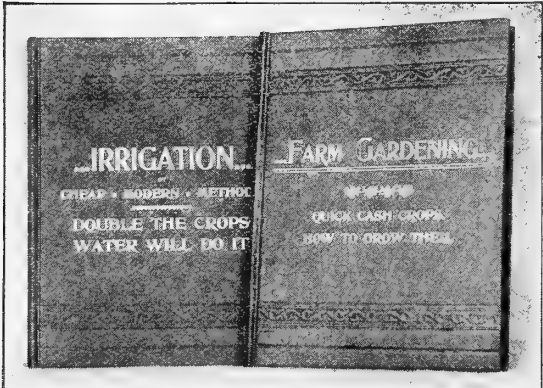 ...IRRIGATION...
BY
CHEAP • MODERN • METHOD
DOUBLE THE CROPS
WATER WILL DO IT
...FARM GARDENING...
QUICK CASH CROPS
HOW TO GROW THEM.